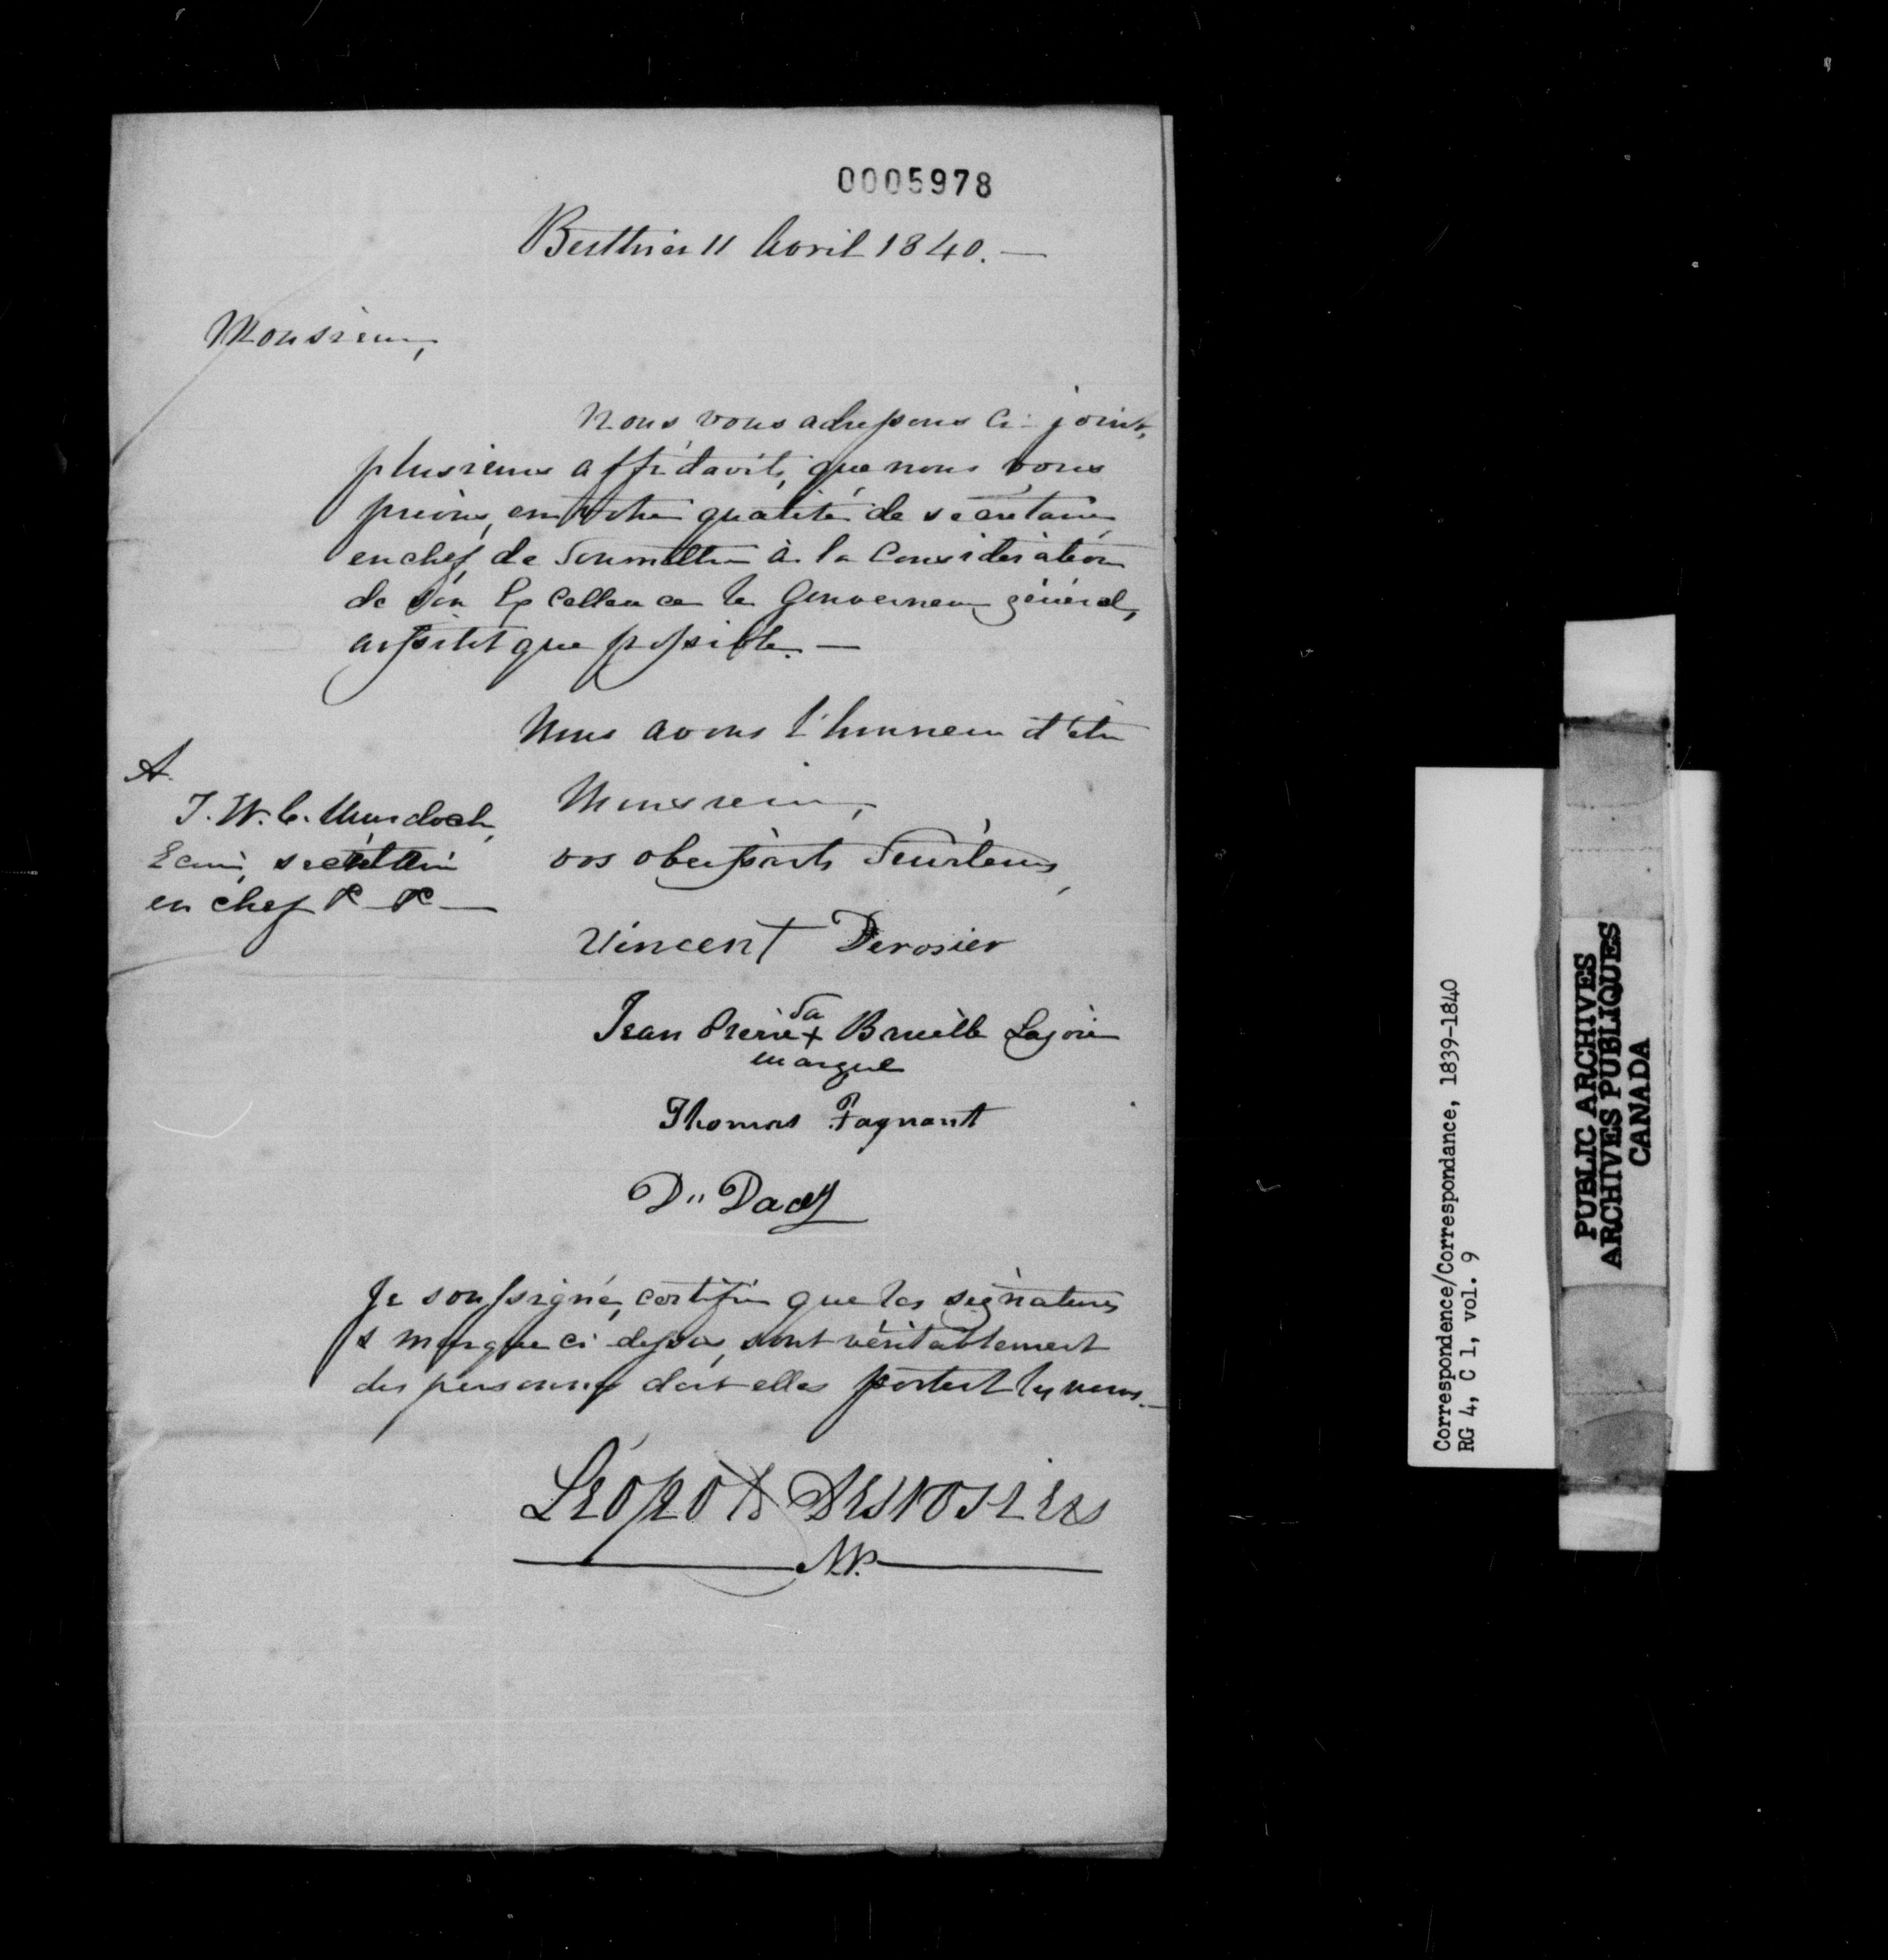 0005978
Berthier 11 Avril 1840.—
Monsieur,
Nous vous adressons ci-joint,
plusieurs affidavits, que nous vous
prions, en votre qualité de secrétaire
en chef, de soumettre à la Considération
de Son Excellence le Gouverneur général,
aussitot que possible.—
Nous avons l'honneur d'être
Monsieur,
vos obéissants Serviteurs,
A
T. W. C. Murdoch,
Ecuier, secrétaire
en chef &c &c—
Vincent Derosier
Jean Pierre sa + marque Bruèlle Lajoie
Thomas Fagnant
D. Dady
Je soussigné, certifie que les signatures
& marque ci-dessus, sont véritablement
des personnes dont elles portent les noms.—
Léopold Desrosiers
NP.
Correspondence/Correspondance, 1839-1840
RG 4, C 1, vol. 9
PUBLIC ARCHIVES
ARCHIVES PUBLIQUES
CANADA